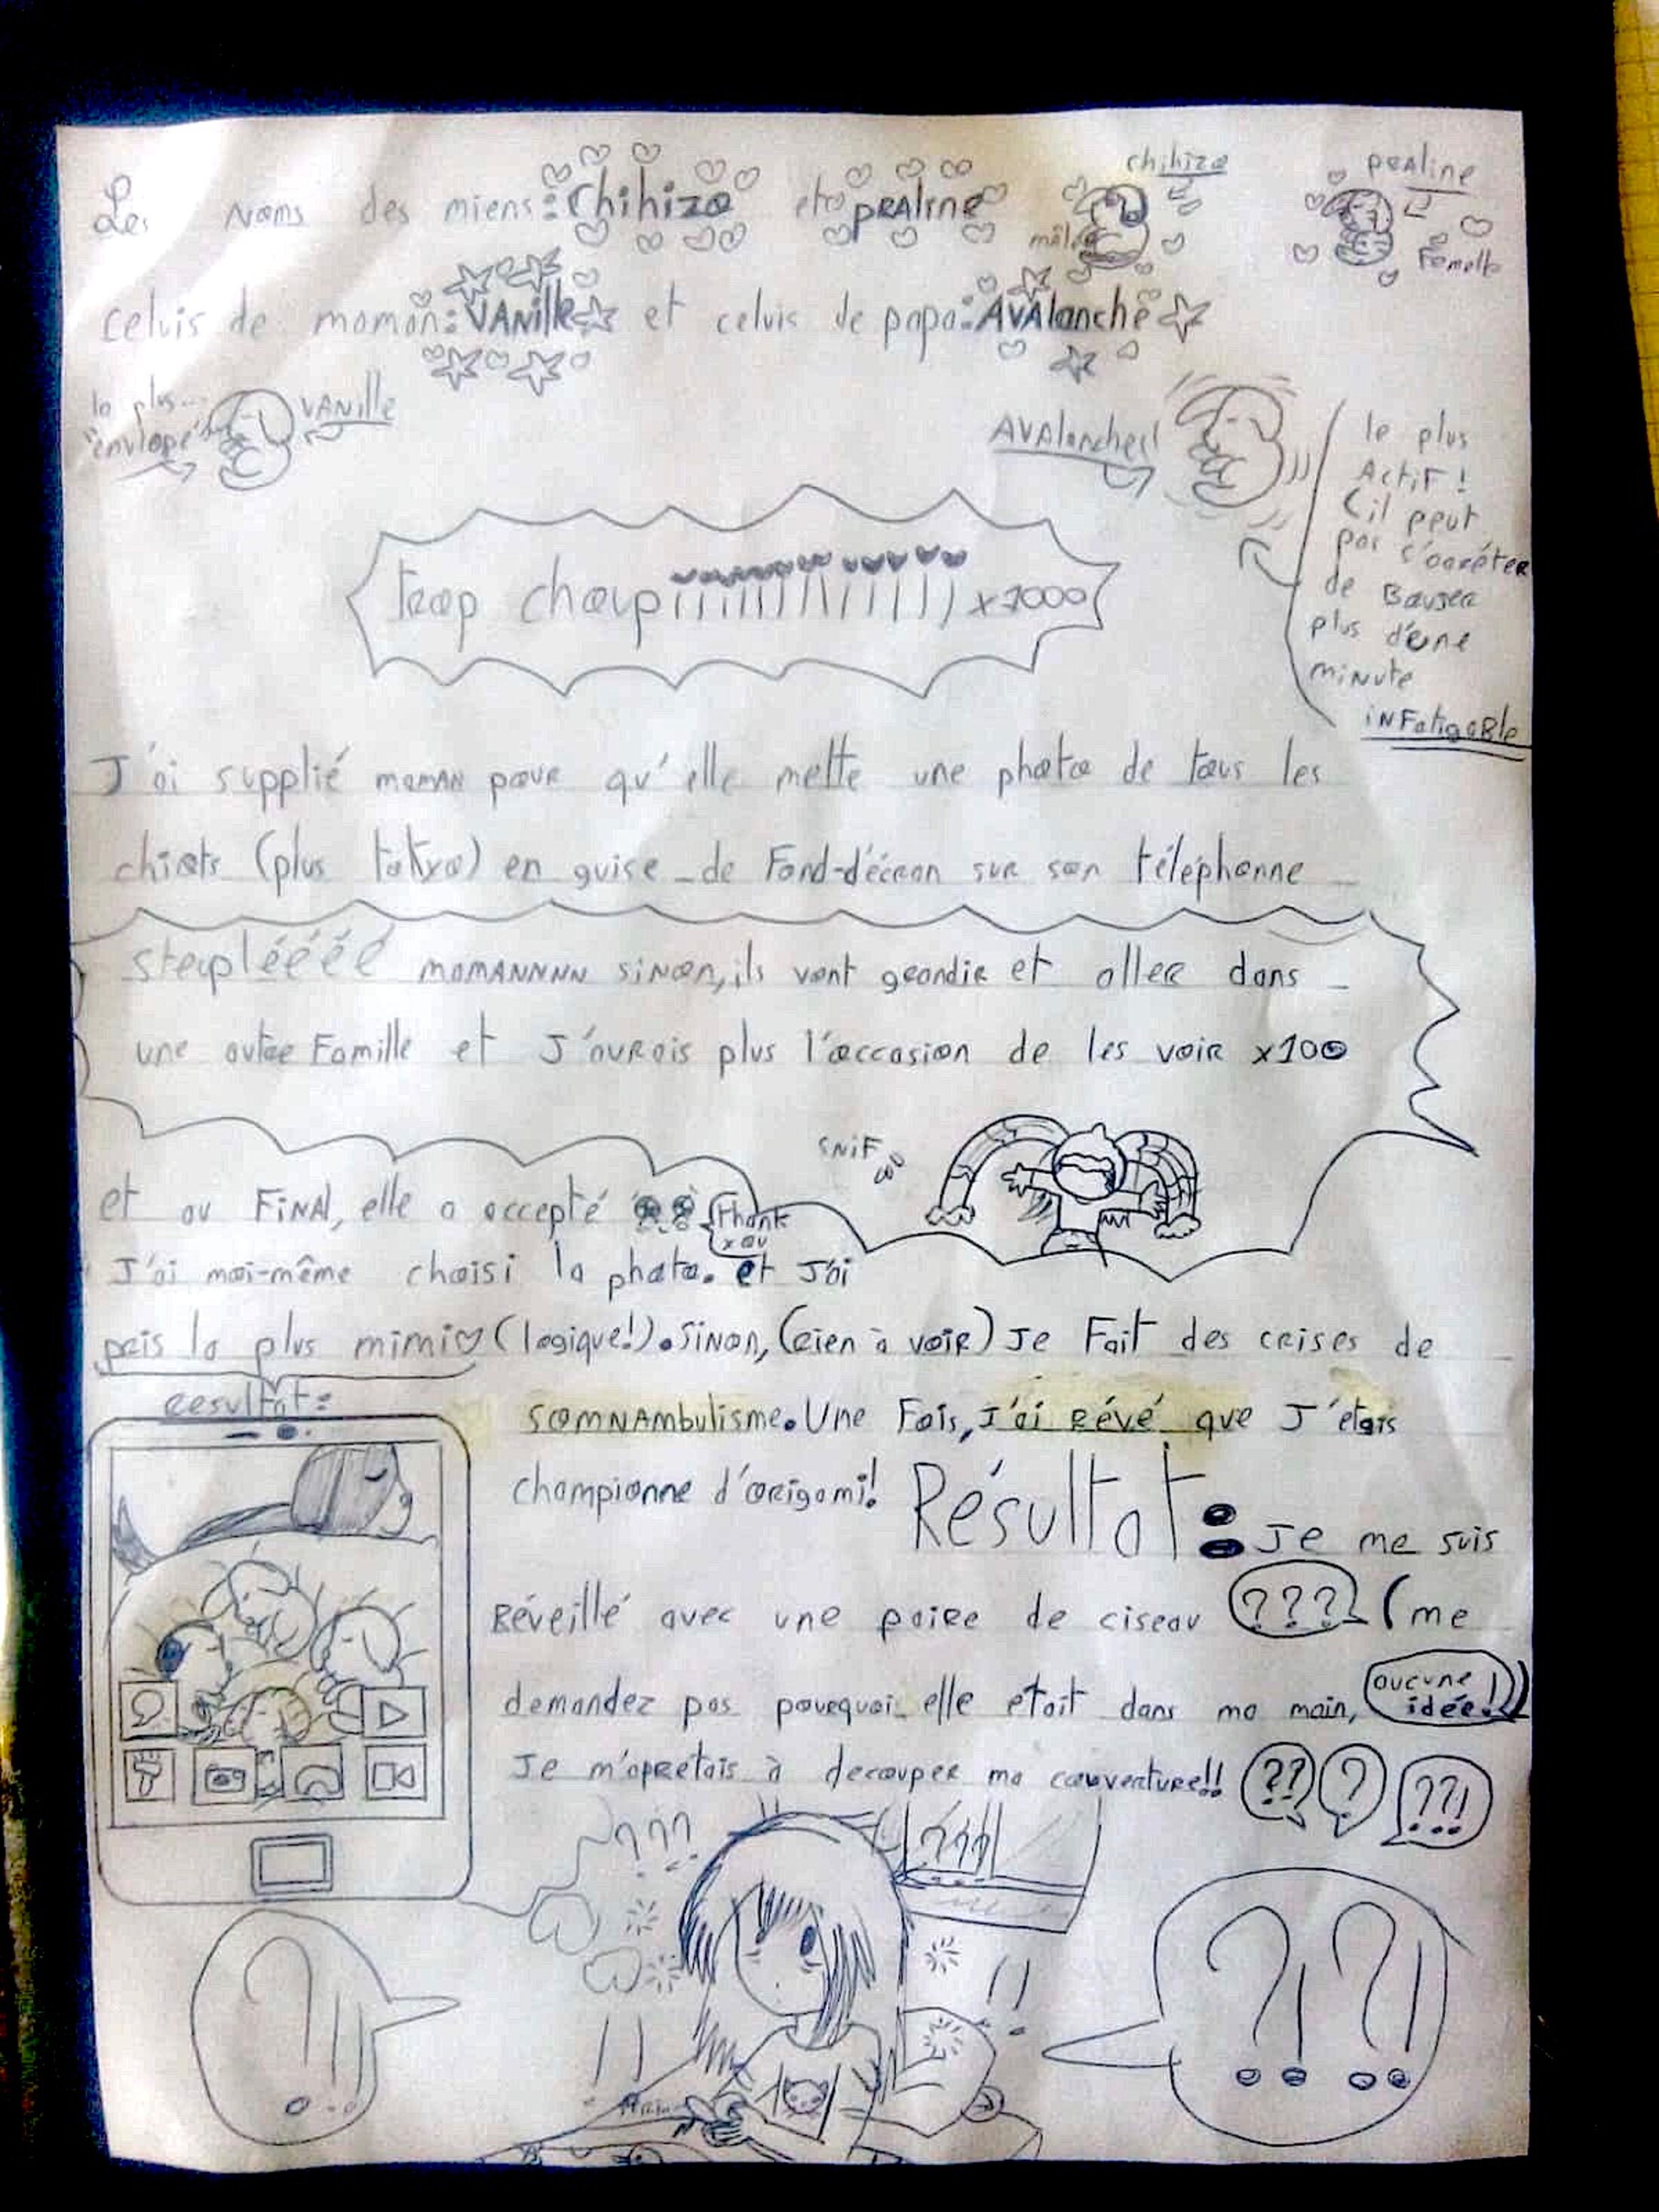 chihizo
praline
Les noms des miens: Chihizo et praline
mâle
Femelle
celuis de maman: VANille et celuis de papa: AVAlanche
la plus...
"envlopé"
VANille
AVAlanche!!
le plus
ActiF!
(il peut
pas s'arréter
de Bouger
plus d'une
minute
iNFatigaBle
trop choup!!!!!!!!!!!!!!! x1000
J'ai supplié maman pour qu'elle mette une photo de tous les
chiots (plus tokyo) en guise de Fond-d'écran sur son téléphonne
steuplééééé mamANNNN sinon, ils vont grandir et aller dans
une autre Famille et J'aurais plus l'occasion de les voir x100
SNiF
et au FiNAl, elle a accepté
Thank
you
J'ai moi-même choisi la photo. et J'ai
pris la plus mimi (logique!). Sinon, (rien à voir) Je Fait des crises de
resultat:
somnambulisme. Une Fois, J'ai Révé que J'étais
championne d'origami! Résultat: Je me suis
Réveillé avec une paire de ciseau ??? (me
demandez pas pourquoi elle était dans ma main, aucune
idée!)
Je m'apretais à decouper ma couverture!! ?? ? ??!
???
???
!!
!!
?!!
?!?!